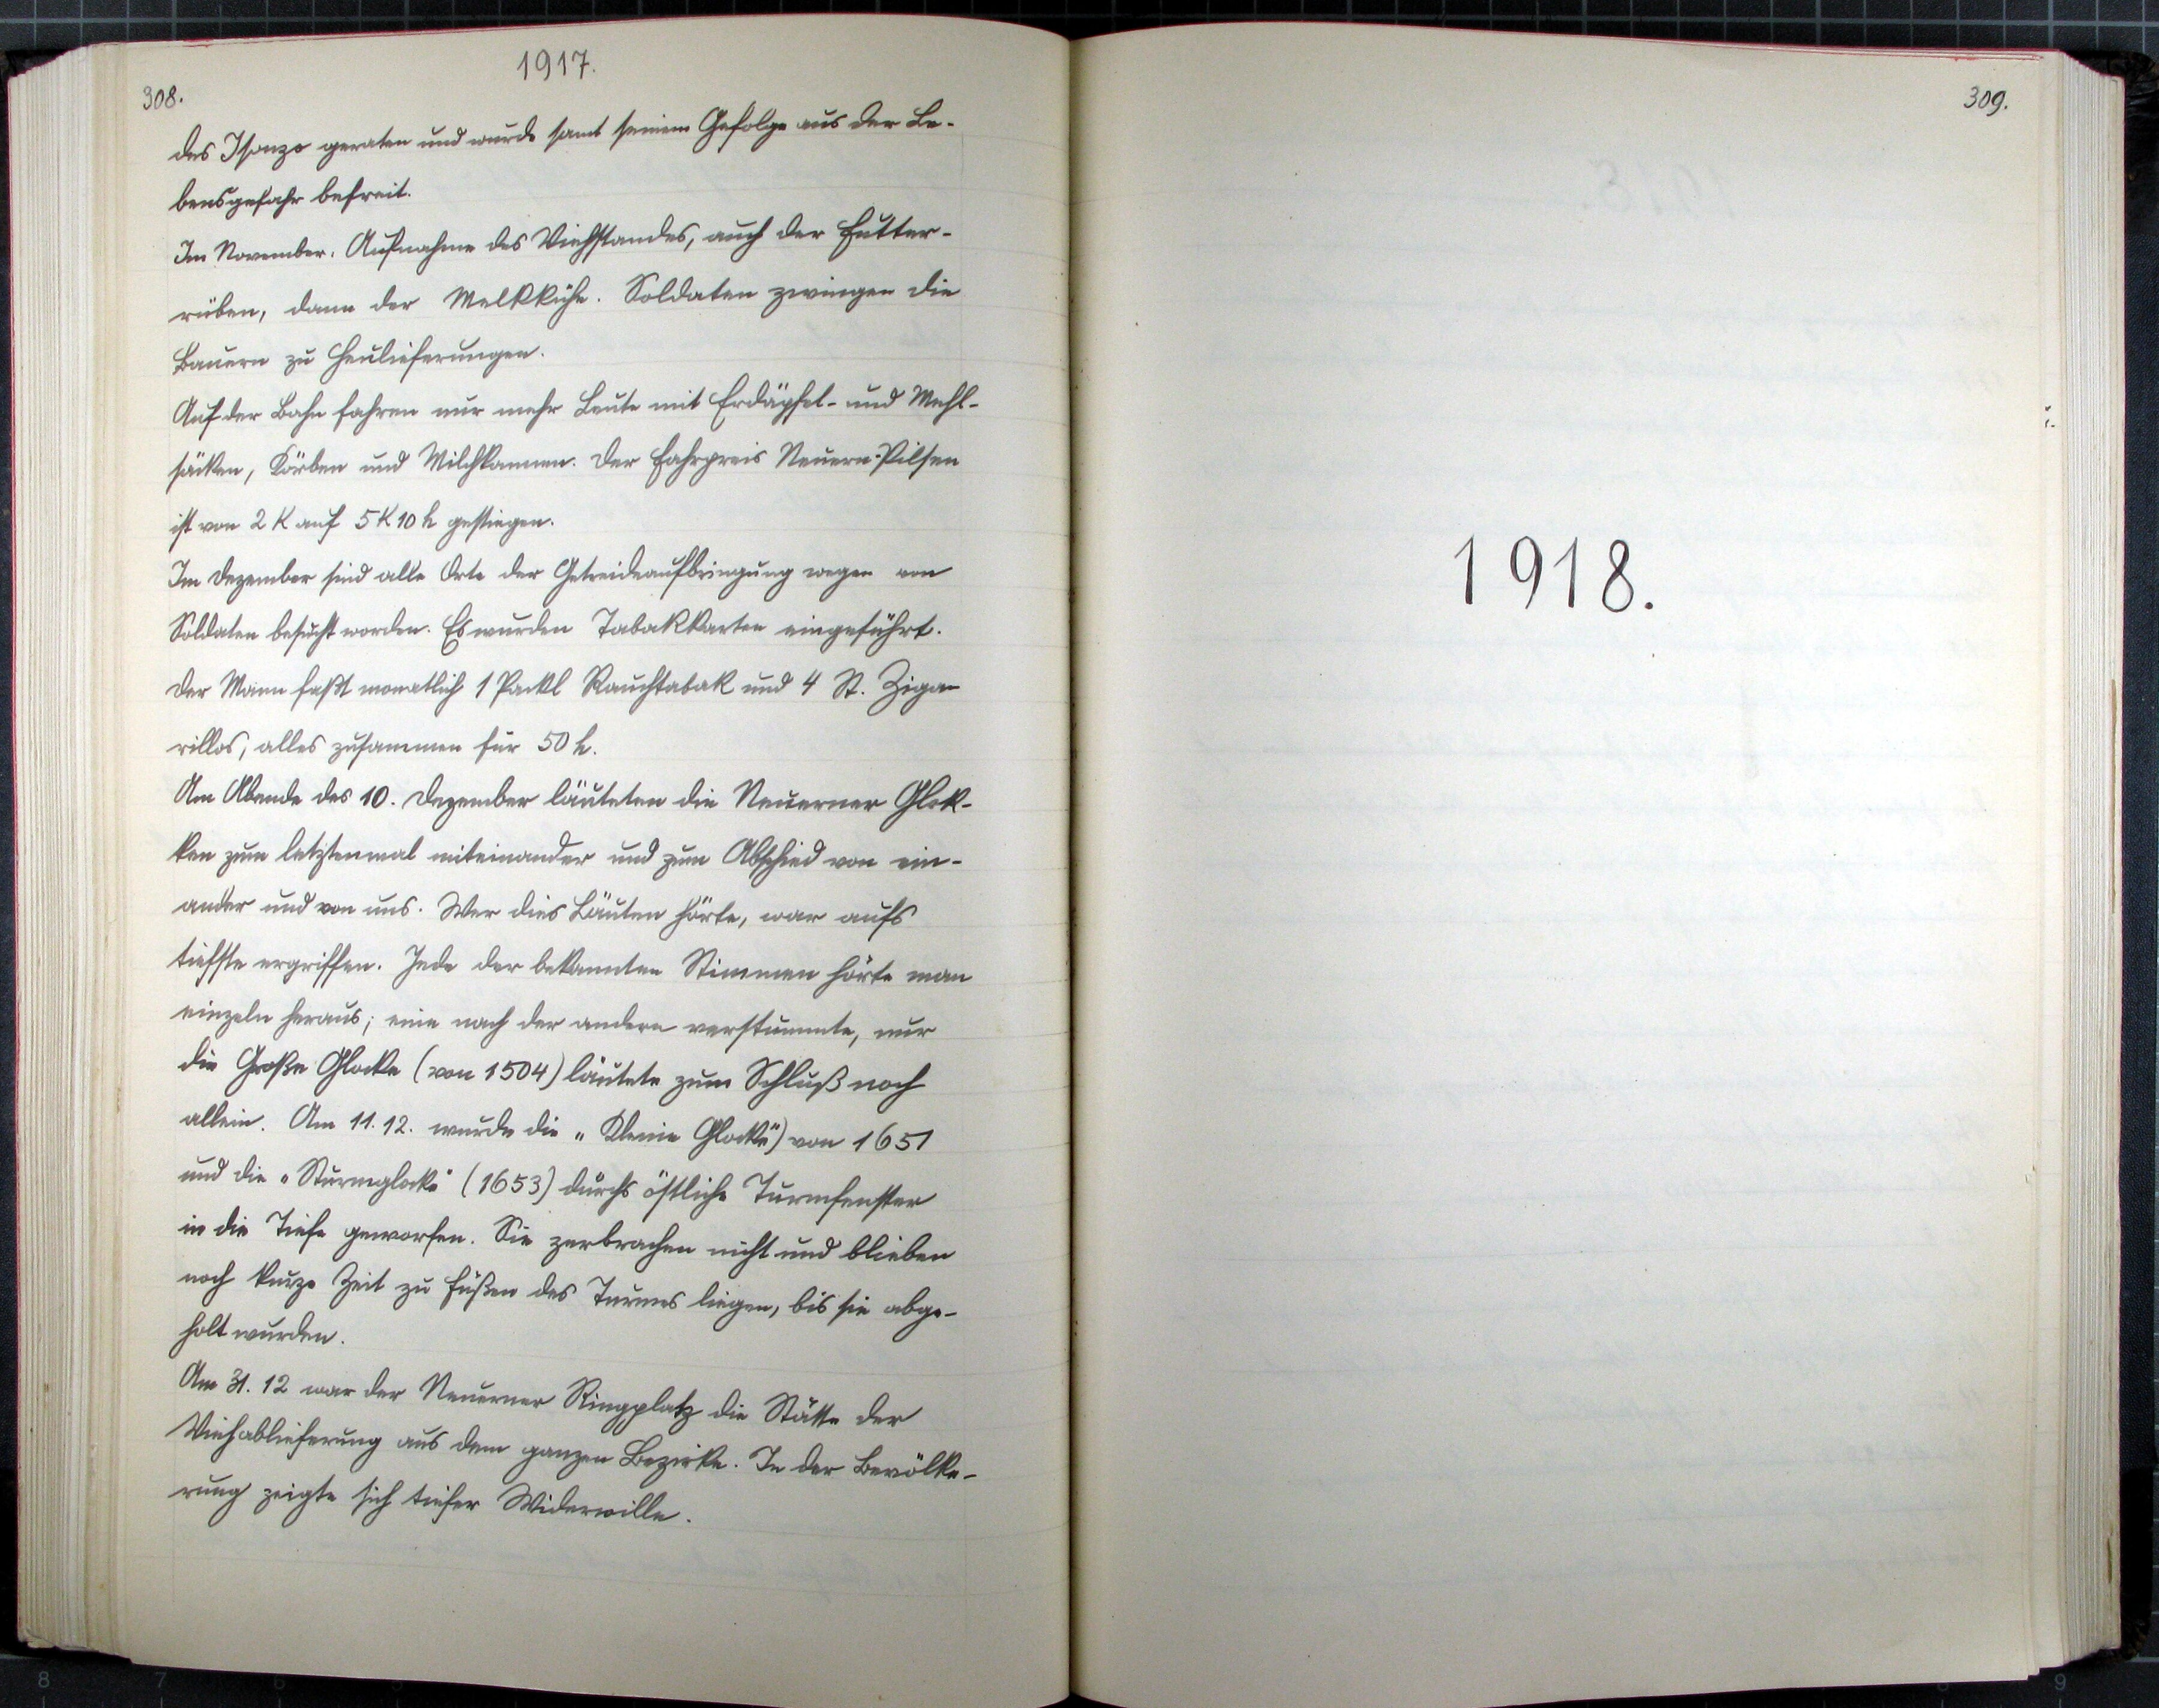 1917.
308.
des Isonzo geraten und wurde samt seinem Gefolge aus der Le-
bensgefahr befreit.
Im November: Aufnahme des Viehstandes, auch der Futter-
rüben, dann der Melkkühe. Soldaten zwingen die
Bauern zu Heulieferungen.
Auf der Bahn fahren nur mehr Leute mit Erdäpfel- und Mehl-
säcken, Körben und Milchkannen. Der Fahrpreis Neuern-Pilsen
ist von 2 K auf 5 K 10 h gestiegen.
Im Dezember sind alle Orte der Getreideaufbringung wegen von
Soldaten besucht worden. Es wurden Tabakkarten eingeführt.
Der Mann faßt monatlich 1 Packl Rauchtabak und 4 St. Ziga-
rillos, alles zusammen für 50 h.
Am Abende des 10. Dezember läuteten die Neuerner Glok-
ken zum letztenmal miteinander und zum Abschied von ein-
ander und von uns. Wer dies Läuten hörte, war aufs
tiefste ergriffen. Jede der bekannten Stimmen hörte man
einzeln heraus; eine nach der andern verstummte, nur
die Große Glocke (von 1504) läutete zum Schluß noch
allein. Am 11. 12. wurde die „Kleine Glocke") von 1651
und die „Sturmglocke" (1653) durchs östliche Turmfenster
in die Tiefe geworfen. Sie zerbrachen nicht und blieben
noch kurze Zeit zu Füßen des Turmes liegen, bis sie abge-
holt wurden.
Am 31. 12 war der Neuerner Ringplatz die Stätte der
Viehablieferung aus dem ganzen Bezirke. In der Bevölke-
rung zeigte sich tiefer Widerwille.
309.
1918.
8 7 6 5
8 9